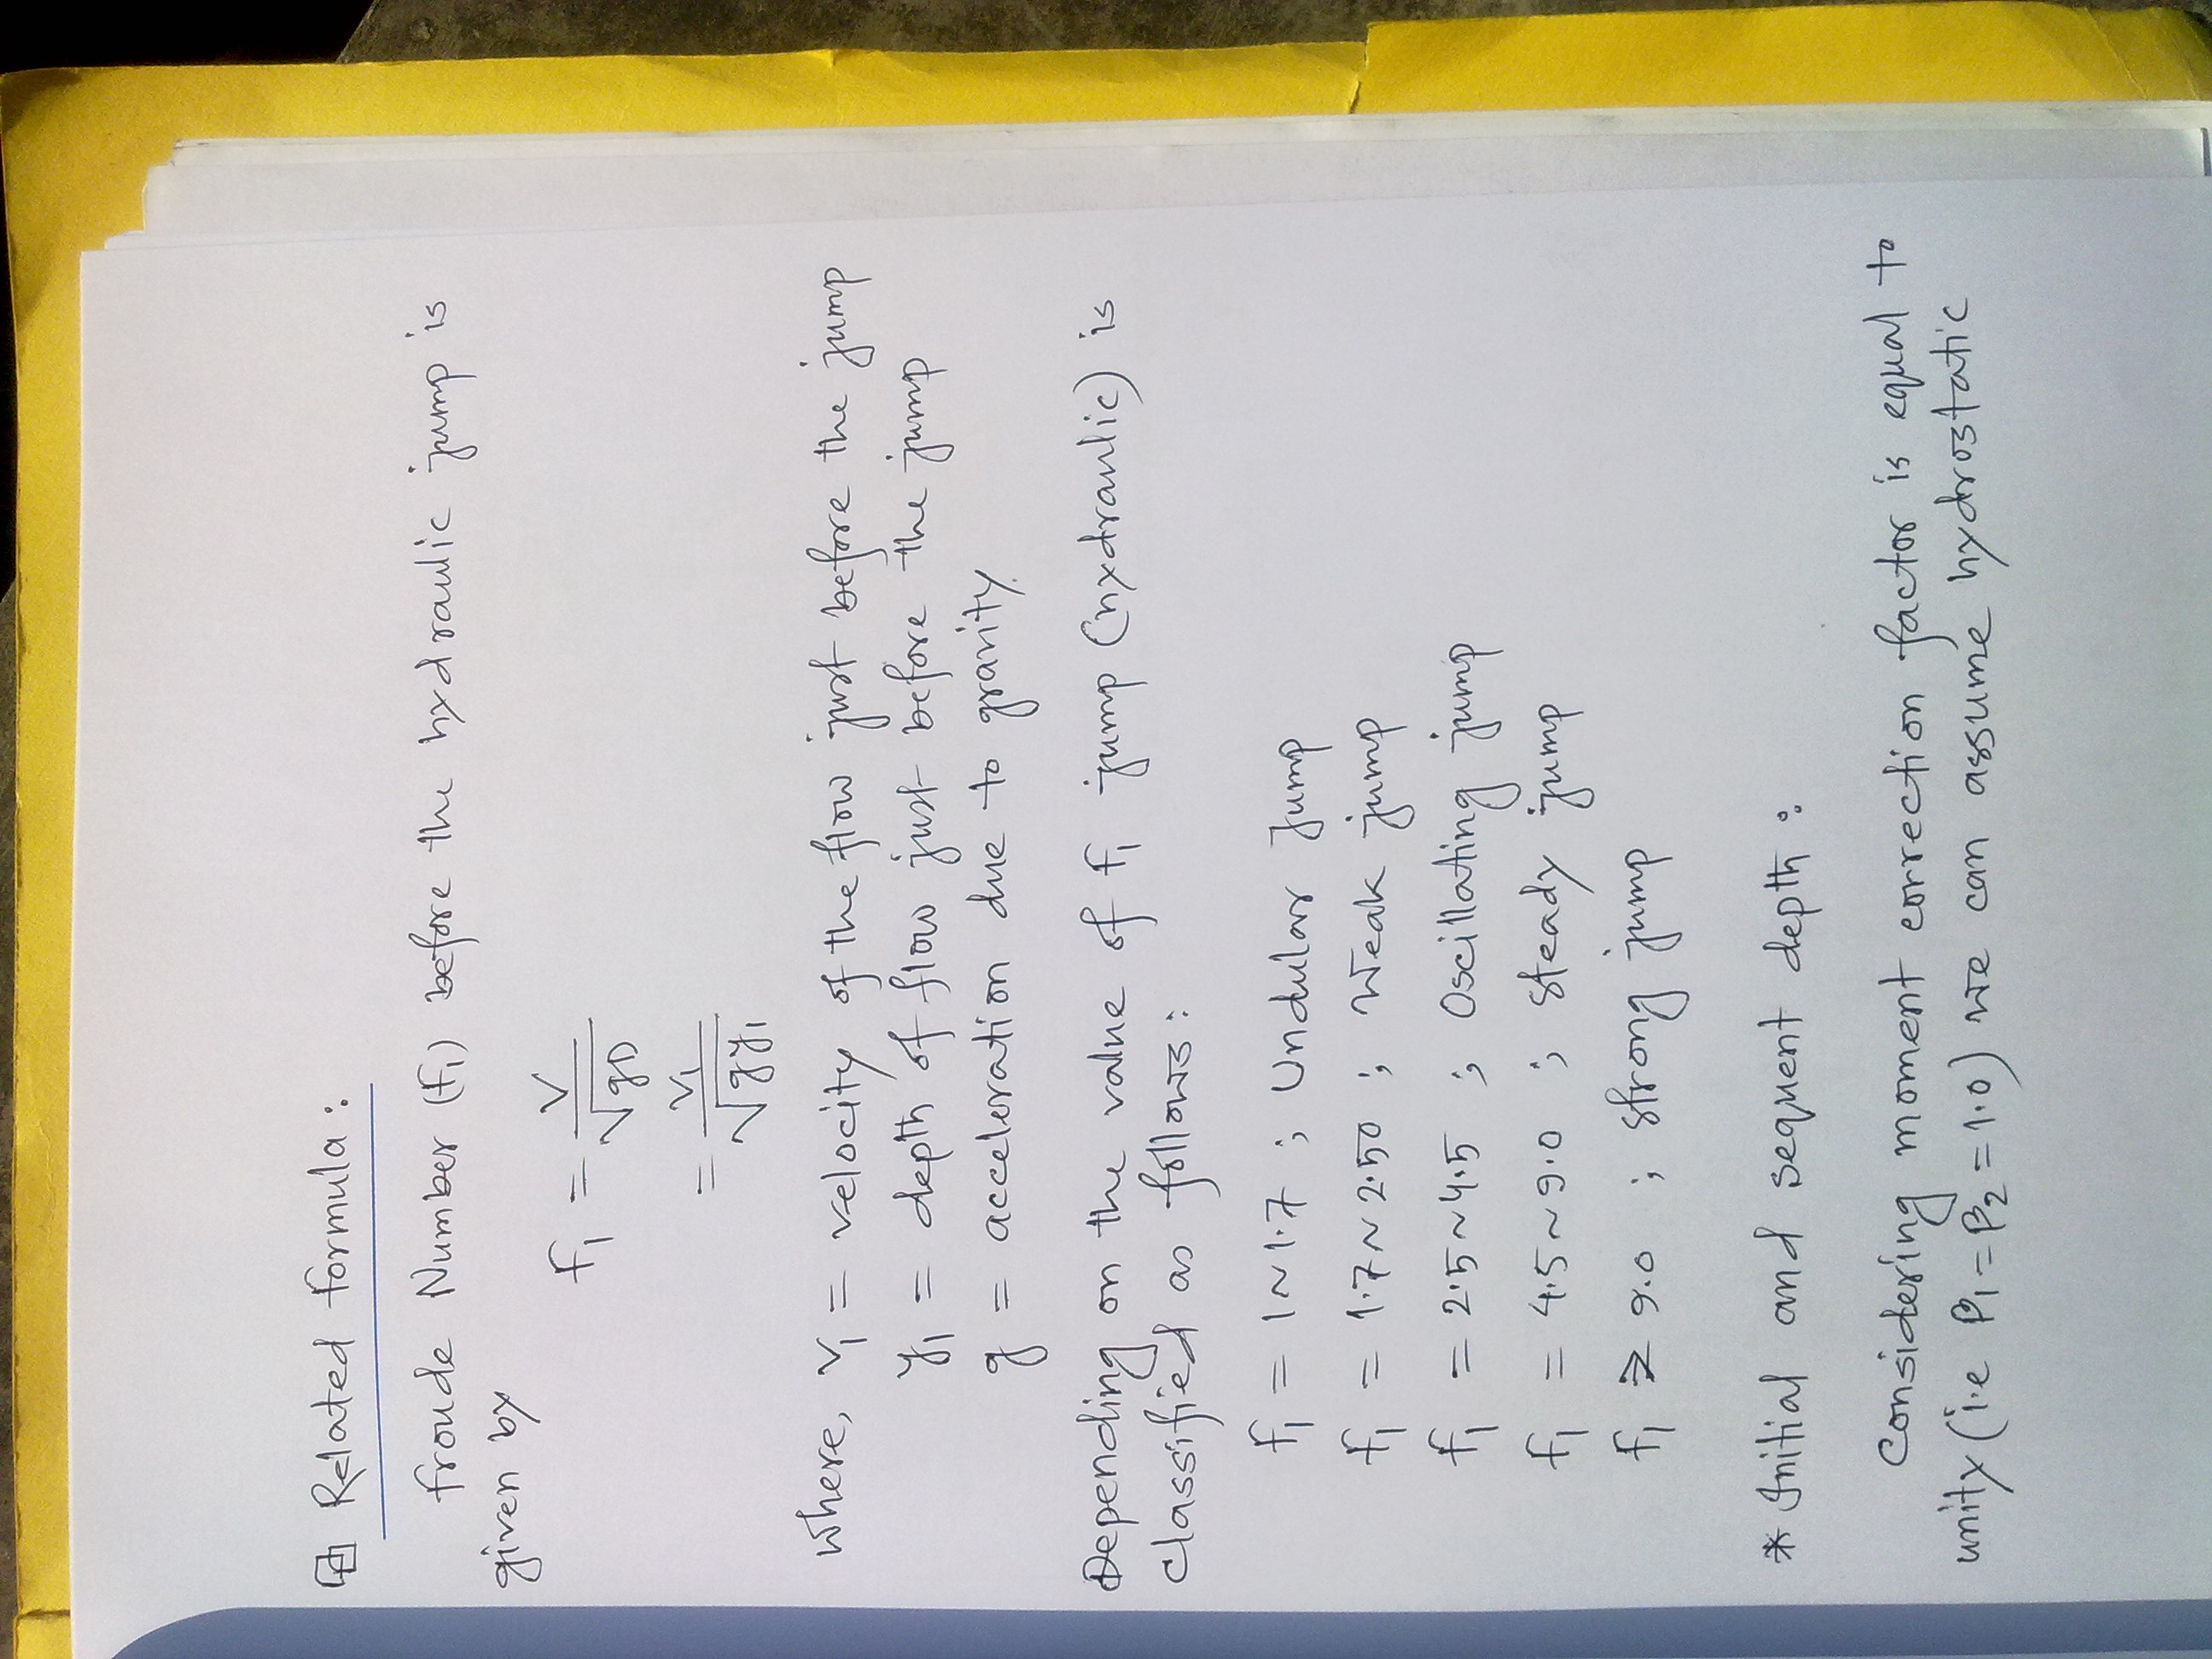 Related formula:
Froude Number (F₁) before the hydraulic jump is
given by
F₁ = V/√gD
= V₁/√gy₁
where, V₁ = velocity of the flow just before the jump
y₁ = depth of flow just before the jump
g = acceleration due to gravity.
Depending on the value of F₁ jump (hydraulic) is
classified as follows:
F₁ = 1~1.7 ; Undular jump
F₁ = 1.7~2.50 ; Weak jump
F₁ = 2.5~4.5 ; Oscillating jump
F₁ = 4.5~9.0 ; steady jump
F₁ ⩾ 9.0 ; strong jump
* Initial and sequent depth :
Considering moment correction factor is equal to
unity (i.e β₁ = β₂ = 1.0) we can assume hydrostatic